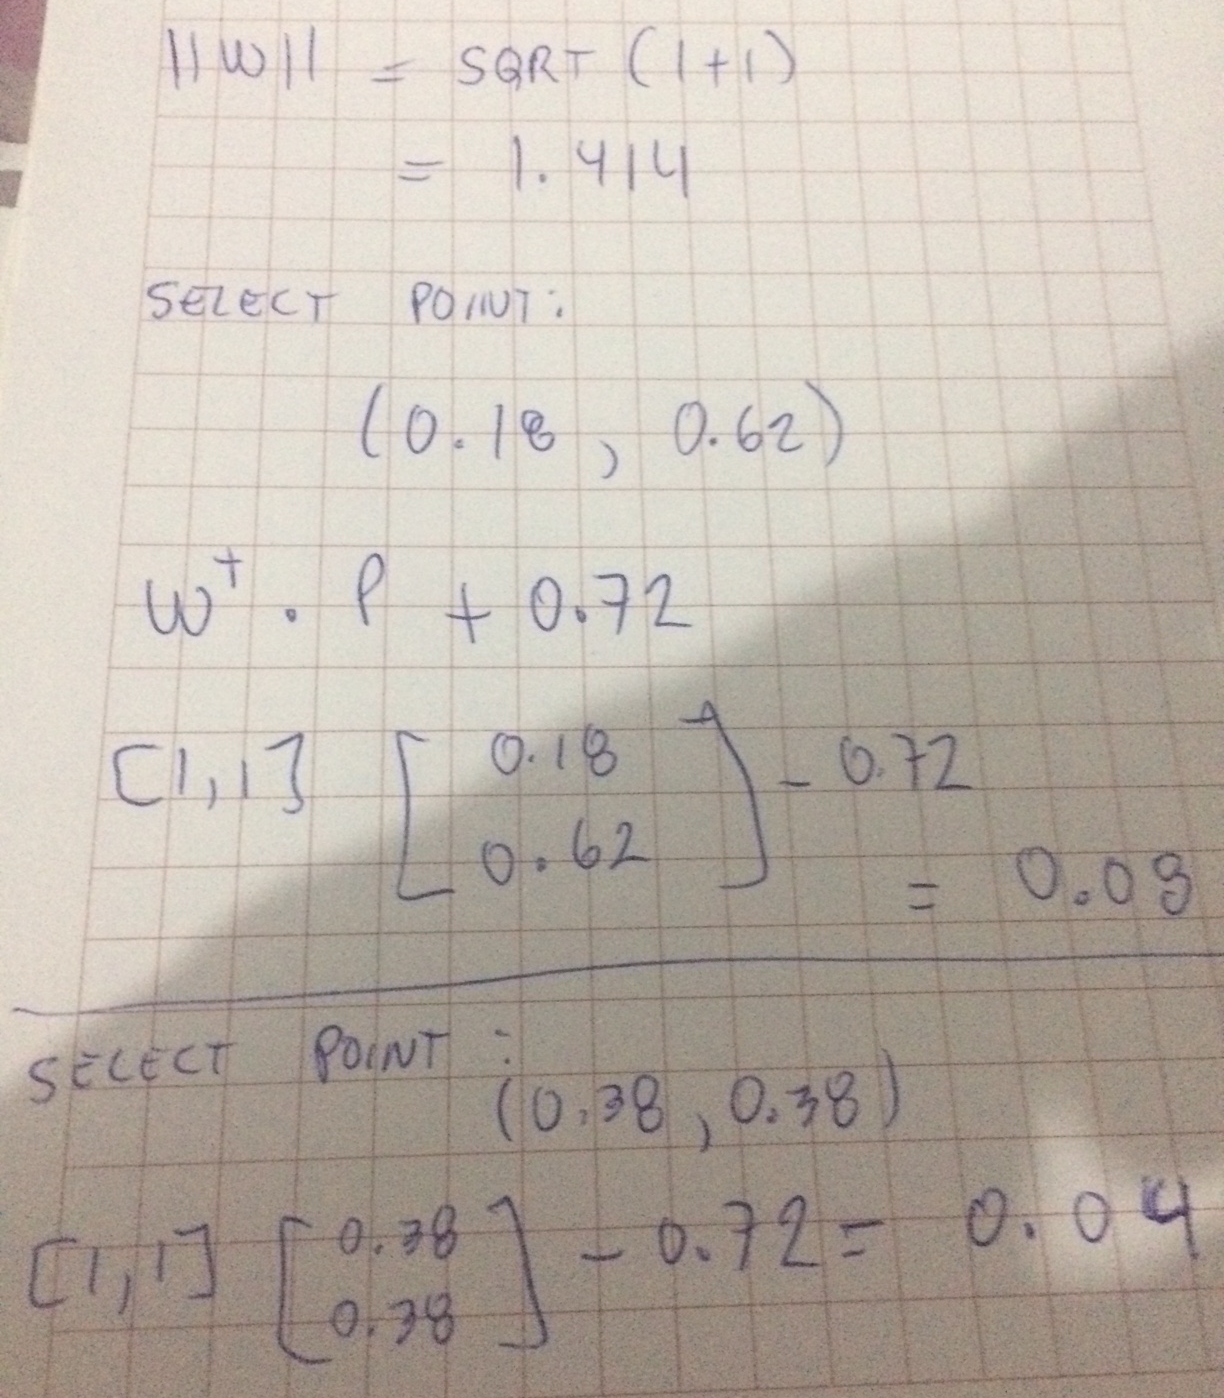 ||W|| = SQRT (1+1)
= 1.414
SELECT POINT:
(0.18, 0.62)
W^T . P + 0.72
[1,1] [0.18
0.62] - 0.72
= 0.08
SELECT POINT:
(0.38, 0.38)
[1,1] [0.38
0.38] - 0.72 = 0.04